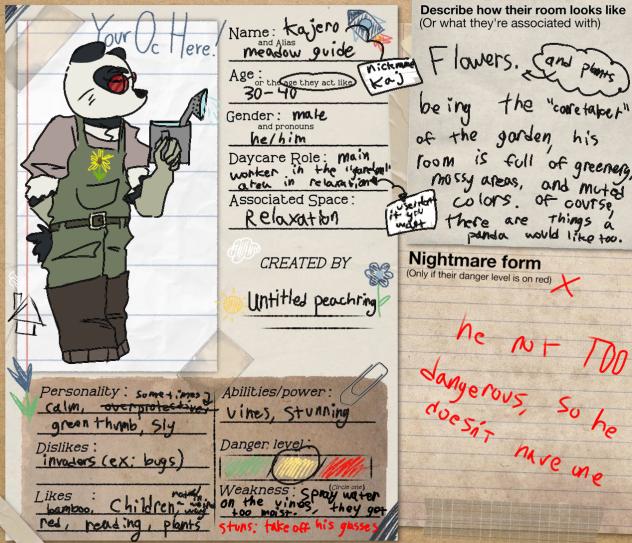 Your Oc Here!
Name: Kajero
and Alias
meadow guide
nickname
Kaj
Age: or the age they act like
30-40
Gender: male
and pronouns
he/him
Daycare Role: main
worker in the "garden"
area in relaxation
it you
want
Associated Space:
Relaxation
CREATED BY
Untitled peachring
Describe how their room looks like
(Or what they're associated with)
Flowers. and plants
being the "caretaker"
of the garden, his
room is full of greenery,
mossy areas, and muted
colors. of course,
there are things a
panda would like too.
Nightmare form
(Only if their danger level is on red)
he not TOO
dangerous, so he
doesn't have one
Personality: sometimes
calm, overprotective
green thumb, sly
Dislikes:
invaders (ex: bugs)
Likes :
bamboo, Children,
red, reading, plants
Abilities/power:
vines, Stunning
Danger level:
(Circle one)
Weakness: Spray water
on the vines, they get
too moist.
stuns: take off his glasses